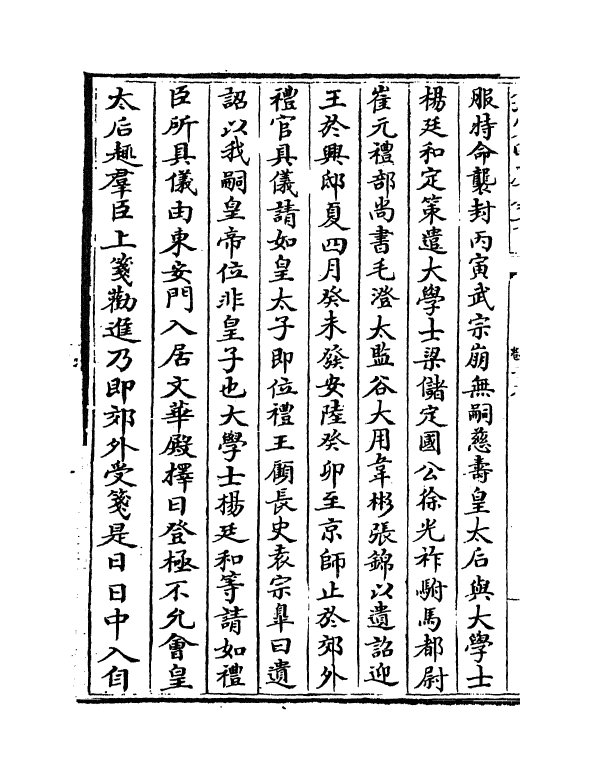 服特命襲封丙寅武宗崩無嗣慈壽皇太后與大學士
楊廷和定策遣大學士梁儲定國公徐光祚駙馬都尉
崔元禮部尚書毛澄太監谷大用韋彬張錦以遺詔迎
王於興邸夏四月癸未發安陸癸卯至京師止於郊外
禮官具儀請如皇太子即位禮王顧長史袁宗臯曰遺
詔以我嗣皇帝位非皇子也大學士楊廷和等請如禮
臣所具儀由東安門入居文華殿擇日登極不允會皇
太后趣羣臣上箋勸進乃即郊外受箋是日日中入自